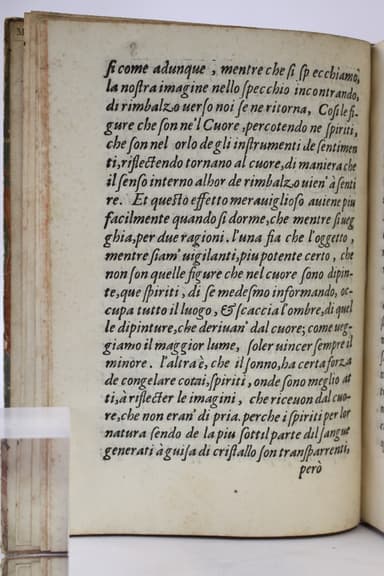 si come adunque, mentre che si specchiamo,
la nostra imagine nello specchio incontrando,
di rimbalzo uerso noi se ne ritorna, Cosi le fi-
gure che son ne'l Cuore, percotendo ne spiriti,
che son nel orlo degli instrumenti de sentimen
ti, riflectendo tornano al cuore, di maniera che
il senso interno alhor de rimbalzo uien' à senti
re. Et questo effetto merauiglioso auiene piu
facilmente quando si dorme, che mentre si ueg
ghia, per due ragioni. l'una fia che l'oggetto,
mentre siam' uigilanti, piu potente certo, che
non son quelle figure che nel cuore sono dipin-
te, que spiriti, di se medesmo informando, oc-
cupa tutto il luogo, & scaccia l'ombre, di quel
le dipinture, che deriuan' dal cuore; come ueg-
giamo il maggior lume, soler uincer sempre il
minore. l'altra è, che il sonno, ha certa forza
de congelare cotai, spiriti, onde sono meglio at
ti, à riflecter le imagini, che riceuon dal cuo-
re, che non eran' di pria. perche i spiriti per lor
natura sendo de la piu sottil parte dil sangue
generati à guisa di cristallo son transparrenti,
però